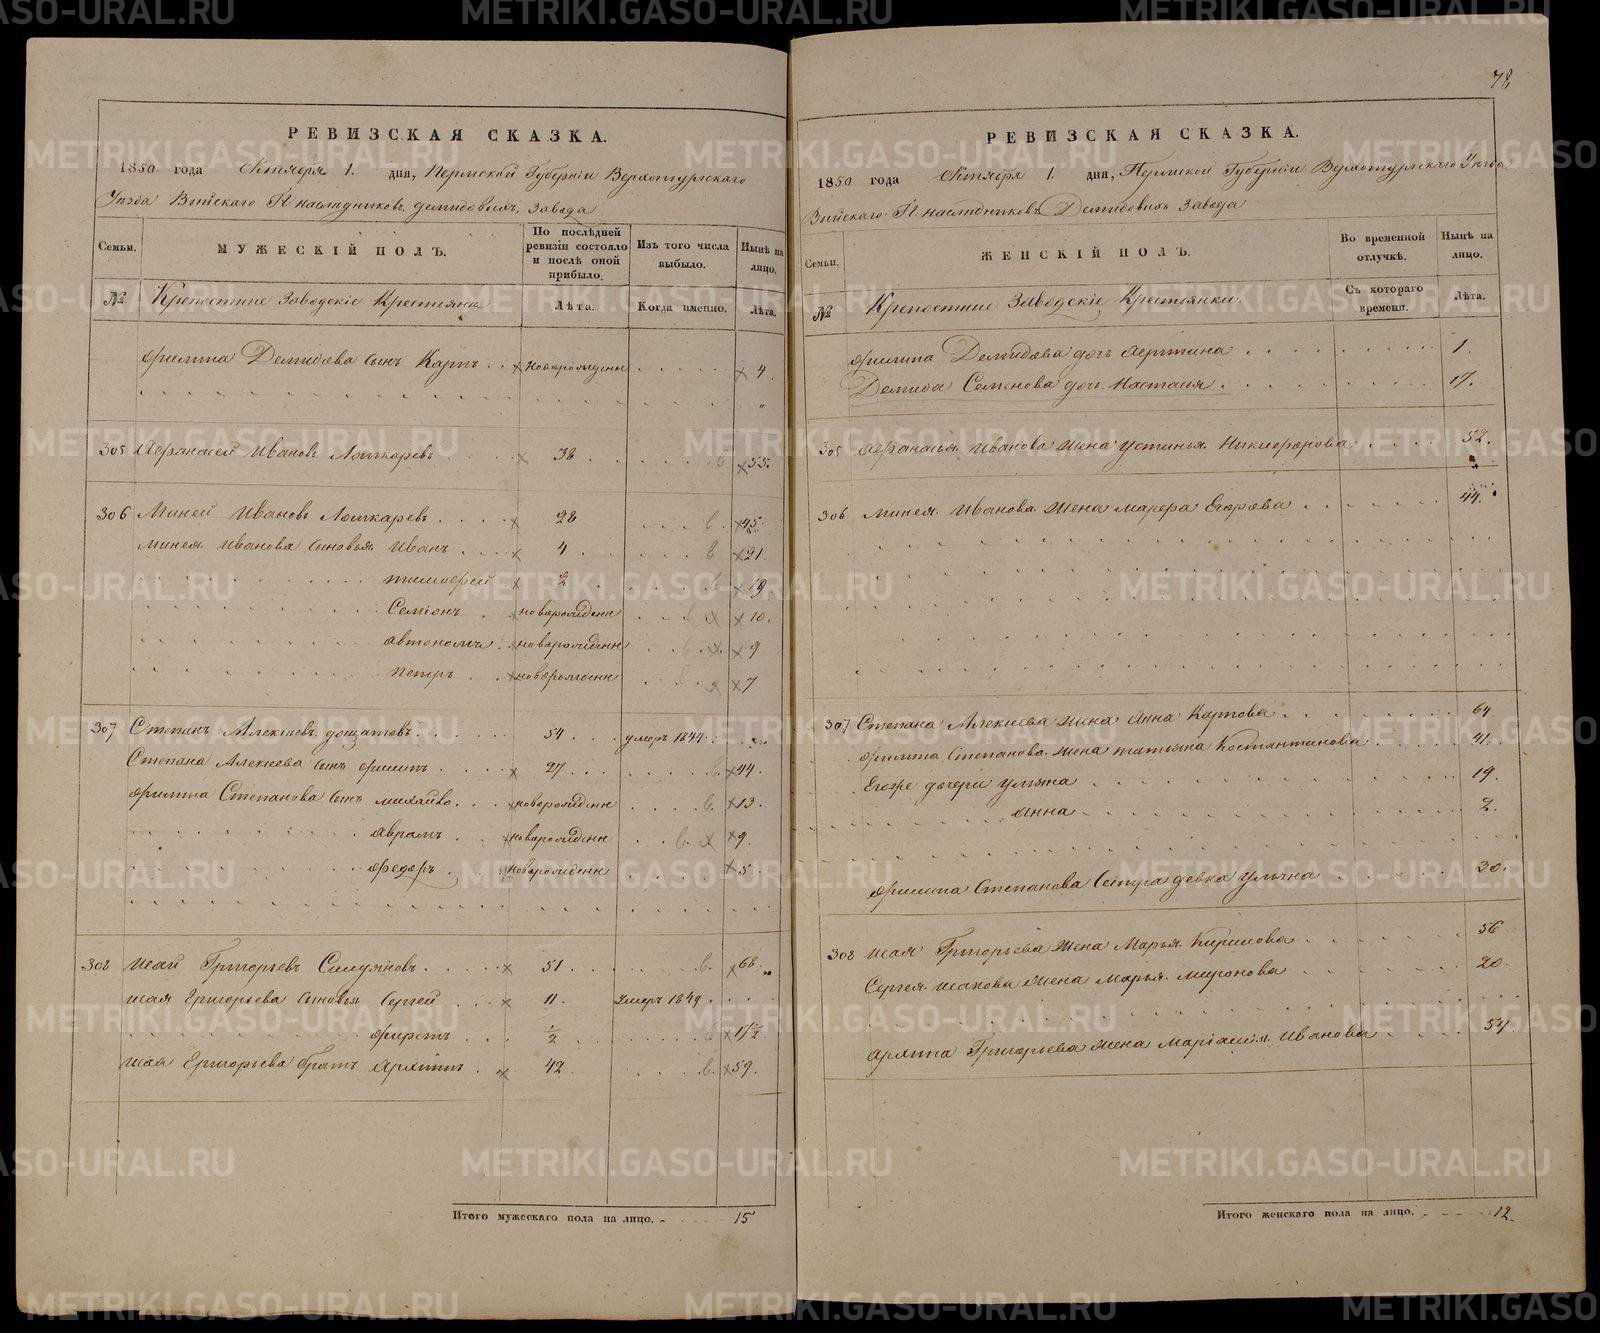 РЕВИЗСКАЯ СКАЗКА.
1850 года Октября 1. дня, Пермской Губерніи Верхотурскаго
Уѣзда Выйскаго Н наслѣдниковъ Демидовыхъ, Завода
Семьи. МУЖЕСКІЙ ПОЛЪ. По послѣдней ревизіи состояло и послѣ оной прибыло. Изъ того числа выбыло. Нынѣ на лицо.
№ Крепостные Заводскіе Крестьяна Лѣта. Когда именно. Лѣта.
Филипа Демидова сынъ Карпъ новорожденн 4.
305 Афанасей Ивановъ Лошкаревъ 38 55.
306 Миней Ивановъ Лошкаревъ 28 45.
Минея Иванова сыновья Иванъ 4 21
тимофей 2 19
Семіонъ новорожденн 10.
автономъ новорожденн 9
петръ новорожденн 7
307 Степанъ Алексѣевъ 54 умеръ 1844
Степана Алексѣева сынъ филипъ 27 44.
филипа Степанова сынъ михайло новорожденн 13.
аврамъ новорожденн 9.
федоръ новорожденн 5.
308 Исай Григорьевъ 51. 68.
Исая Григорьева сыновья Сергей 11. Умеръ 1849
фирстъ ½ 17½
Исая Григорьева братъ Архипъ 42 59.
Итого мужескаго пола на лицо. 15
78
РЕВИЗСКАЯ СКАЗКА.
1850 года Октября 1. дня, Пермской Губерніи Верхотурскаго Уѣзда
Выйскаго Н наслѣдниковъ Демидовыхъ Завода
Семьи. ЖЕНСКІЙ ПОЛЪ. Во временной отлучкѣ. Нынѣ на лицо.
№ Крепостные Заводскіе Крестьянки Съ котораго времени. Лѣта.
филипа Демидова дочь 1.
Демида Семенова дочь Настасья 17.
305 Афанасья Иванова жена устинья Никифорова 52.
306 Минея Иванова жена марфа Егорова 44.
307 Степана Алексѣева жена Анна Карпова 64
филипа Степанова жена татьяна Костантинова 41.
Егоже дочери ульяна 19.
анна 2.
филипа Степанова Сестра девка ульяна 30.
308 Исая Григорьева жена Марья Кирилова 56
Сергея Исакова жена Марья миронова 20.
архипа Григорьева жена Иванова 57
Итого женскаго пола на лицо. 12.
METRIKI.GASO-URAL.RU